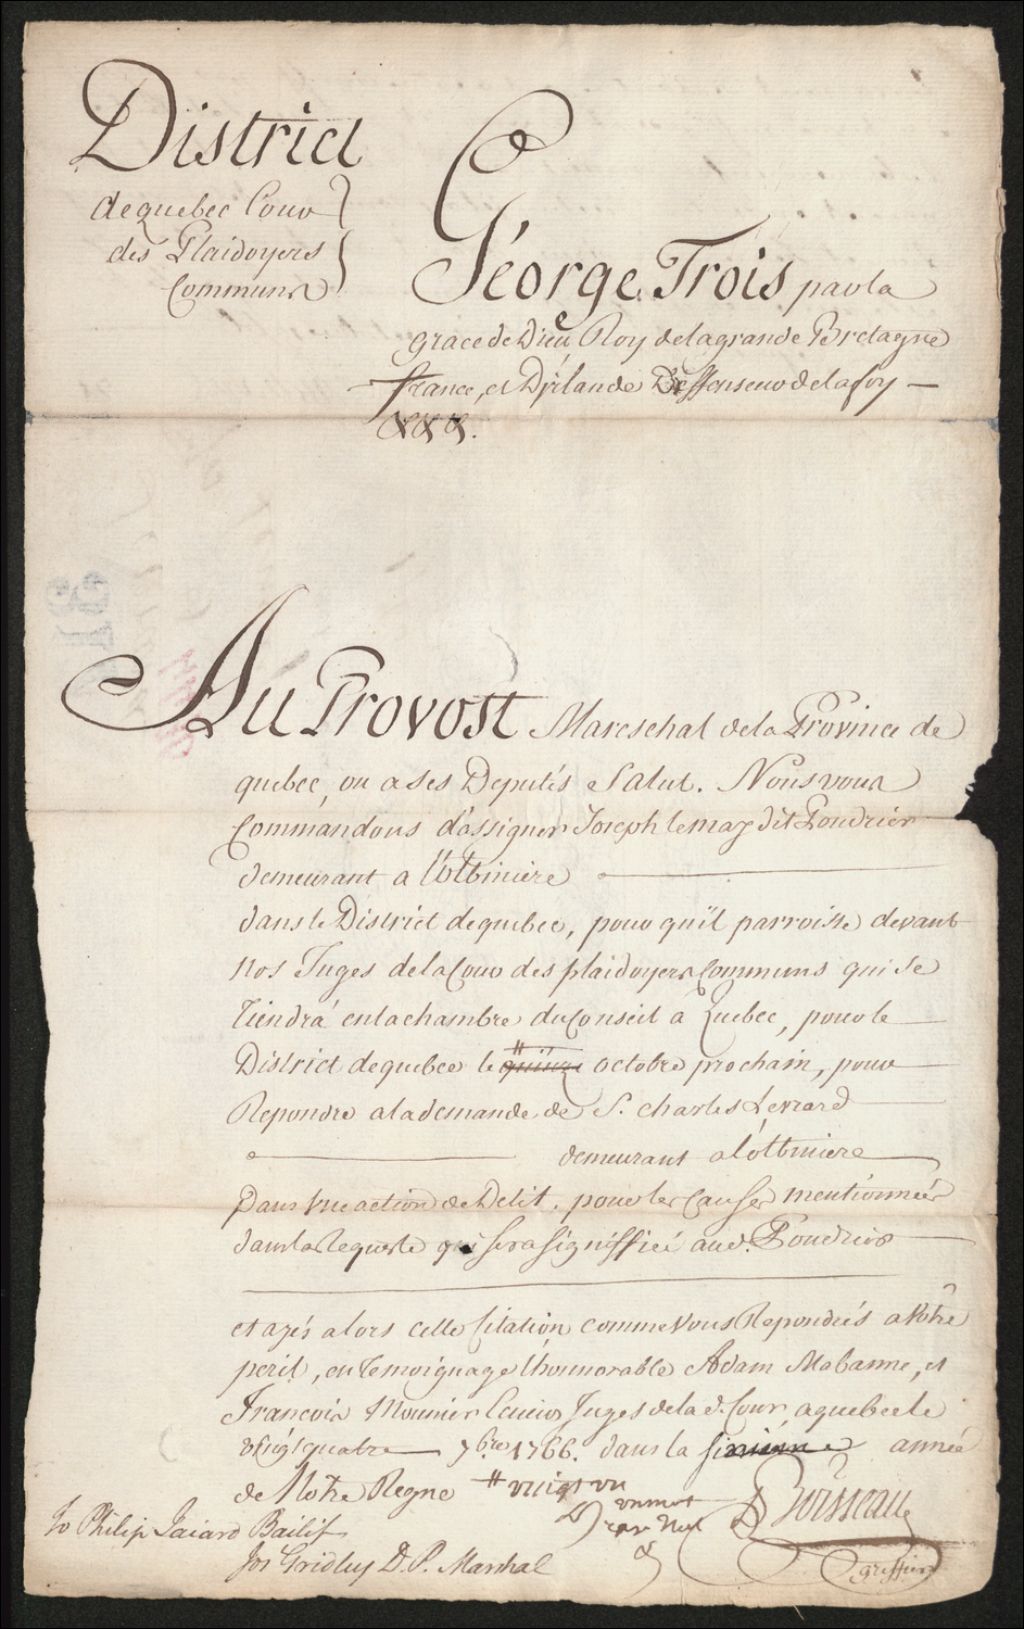 District
de quebec Cour
des Plaidoyers
Communs
George Trois par la
grace de Dieu Roy de la grande Bretagne
france, et D'jrlande Deffenseur de la foy
&c &c &c.
Au Provost Mareschal de la Province de
quebec, ou a ses Deputés Salut. Nous vous
Commandons d'assigner Joseph lemay dit Poudrier
demeurant a lotbiniere
dans le District de quebec, pour qu'il parroisse devant
Nos Juges de la Cour des plaidoyers Communs qui se
Tiendrá en la chambre du Conseil a Quebec, pour le
District de quebec le # quinze octobre prochain, pour
Repondre a la demande de S. charles Levrard
demeurant a lotbiniere
Dans Une action de Delit, pour les Causes mentionnées
dans la Requeste qui sera signiffiée aud. Poudrier
et ayés alors cette Citation comme Vous Repondrés a Votre
peril, en Temoignage l'honnorable Adam Mabanne, et
Francois Mounier Ecuiers Juges de la d. Cour, a quebec le
vingt quatre 7bre 1766. dans la sixieme année
de Notre Regne # vingt un
un mot
raye Nul
Boisseau
greffier
To Philip Bailif
Jos Gridley D. P. Marshal